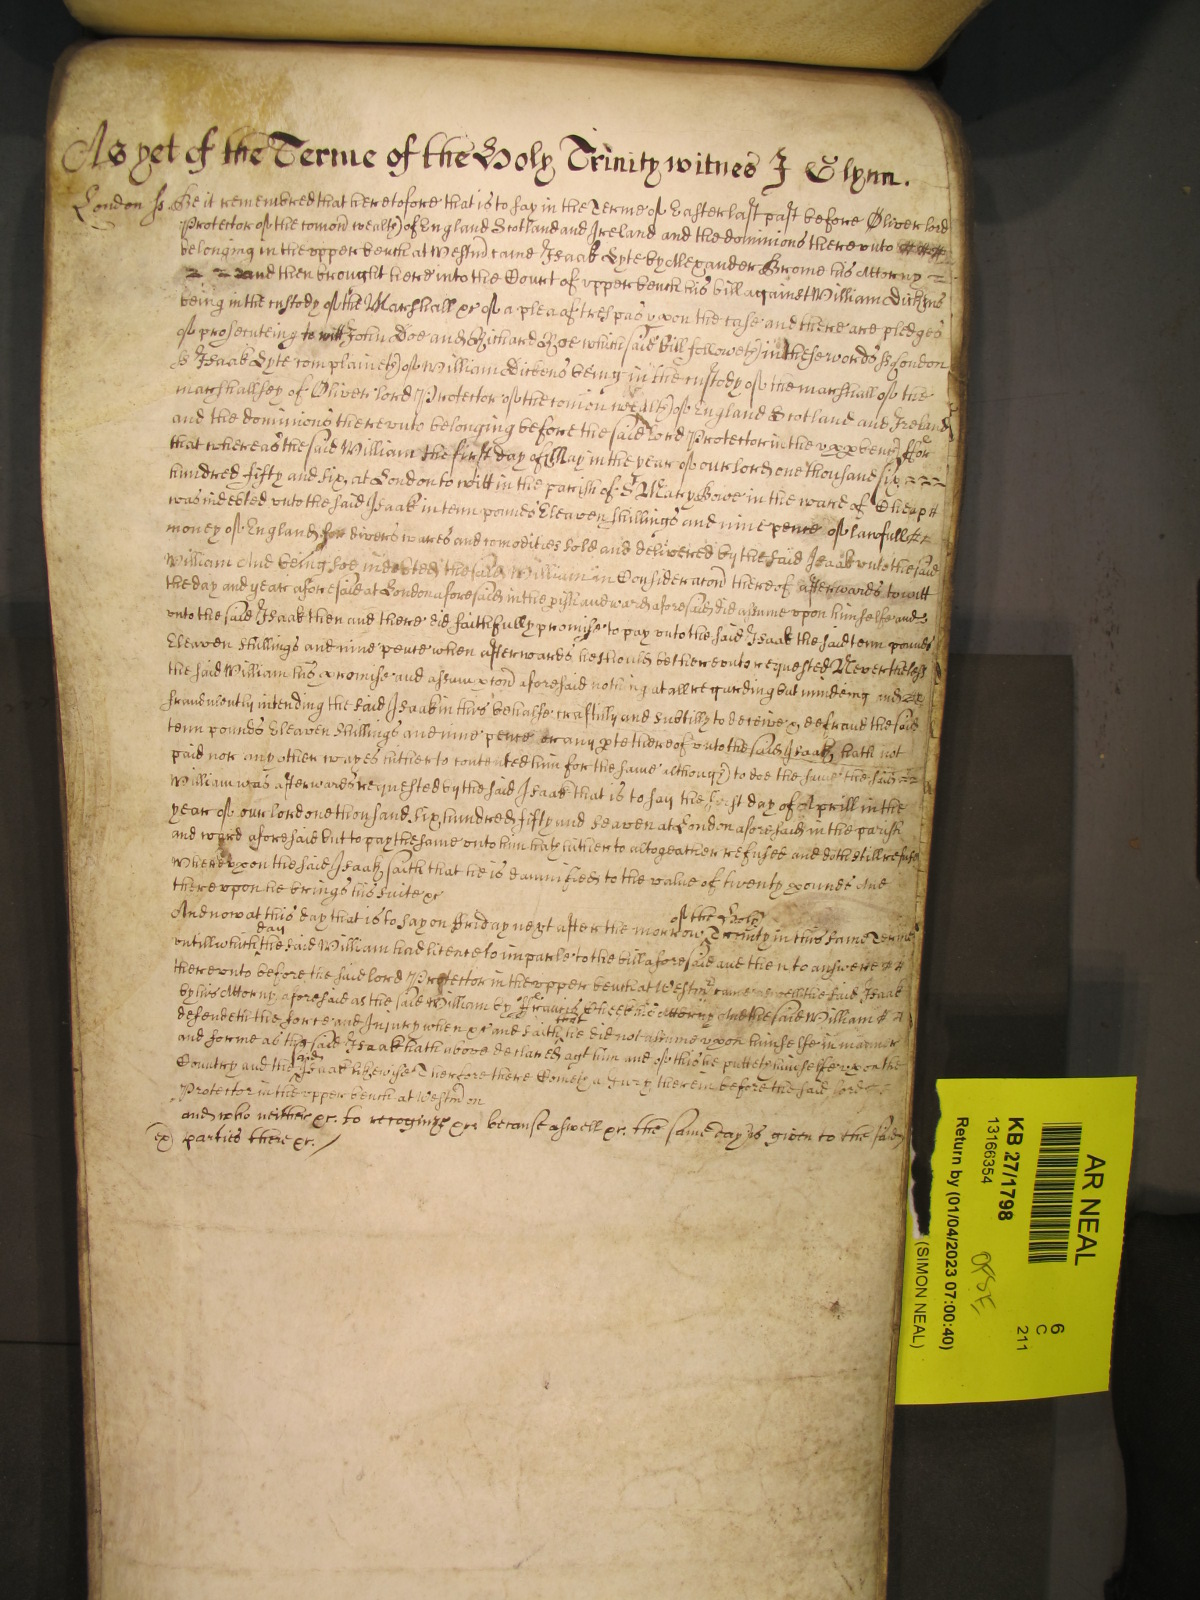 As yet of the Terme of the Holy Trinity witnes J Glynn.
London ss Be it remembred that heretofore that is to say in the Terme of Easter last past before Oliver lord
Protector of the comon wealth of England Scotland and Ireland and the dominions therevnto
belonging in the vpper bench at Westmr came Isaak Lyte by Alexander Brome his Attorny
and then brought here into the Court of vpper bench his bill against William Dickens
being in the custody of the Marshall &c of a plea of trespas vpon the case and there are pledges
of prosecuteing to witt John Doe and Richard Roe which said bill followeth in these words ss London
ss Isaak Lyte complaineth of William Dickens being in the custody of the marshall of the
marshallsey of Oliver lord Protector of the comon wealth of England Scotland and Ireland
and the dominions therevnto belonging before the said lord Protector in the vpper bench ffor
that whereas the said William the first day of May in the year of our lord one thousand six
hundred fifty and six at London to witt in the parish of St Mary Bowe in the ward of Cheap
was indebted vnto the said Isaak in tenn pounds Eleaven shillings and nine pence of lawfull
money of England for divers wares and comodities sold and delivered by the said Isaak vnto the said
William And being soe indebted the said William in Consideracon thereof afterwards to witt
the day and year aforesaid at London aforesaid in the pish and ward aforesaid did assume vpon himselfe and
vnto the said Isaak then and there did faithfully promise to pay vnto the said Isaak the said tenn pounds
Eleaven shillings and nine pence when afterwards he should be therevnto requested Nevertheless
the said William his promise and assumpcon aforesaid nothing at all regarding but mindeing and
fraudulently intending the said Isaak in this behalfe craftilly and subtilly to deceive & defraud the said
tenn pounds Eleaven shillings and nine pence or any pte thereof vnto the said Isaak hath not
paid nor any other wayes hitherto contented him for the same although to doe the same the said
William was afterwards requested by the said Isaak that is to say the first day of Aprill in the
year of our lord one thousand six hundred fifty and seaven at London aforesaid in the parish
and ward aforesaid but to pay the same vnto him hath hitherto altogeather refused and doth still refuse
Wherevpon the said Isaak saith that he is damnified to the value of twenty pounds And
therevpon he brings his suite &c
And now at this day that is to say on ffriday next after the morrow of the Holy Trinity in this same Terme
vntill which day the said William had licence to imparle to the bill aforesaid and then to answere
therevnto before the said lord Protector in the vpper bench at Westmr came aswell the said Isaak
by his Attorny aforesaid as the said William by ffrancis Cheek his Attorny And the said William
defendeth the force and Injury when &c and saith that he did not assume vpon himselfe in manner
and forme as the said Isaak hath above declared agt him and of this he putteth himselfe vpon the
Country and the said Isaak likewise Therefore there Cometh a Jury therein before the said lord
Protector in the vpper bench at Westmr on
and who neither &c. to recognize &c because aswell &c. the same day is given to the said
ex parties there &c.
AR NEAL
KB 27/1798
13166354
Return by (01/04/2023 07:00:40)
(SIMON NEAL)
6
C
211